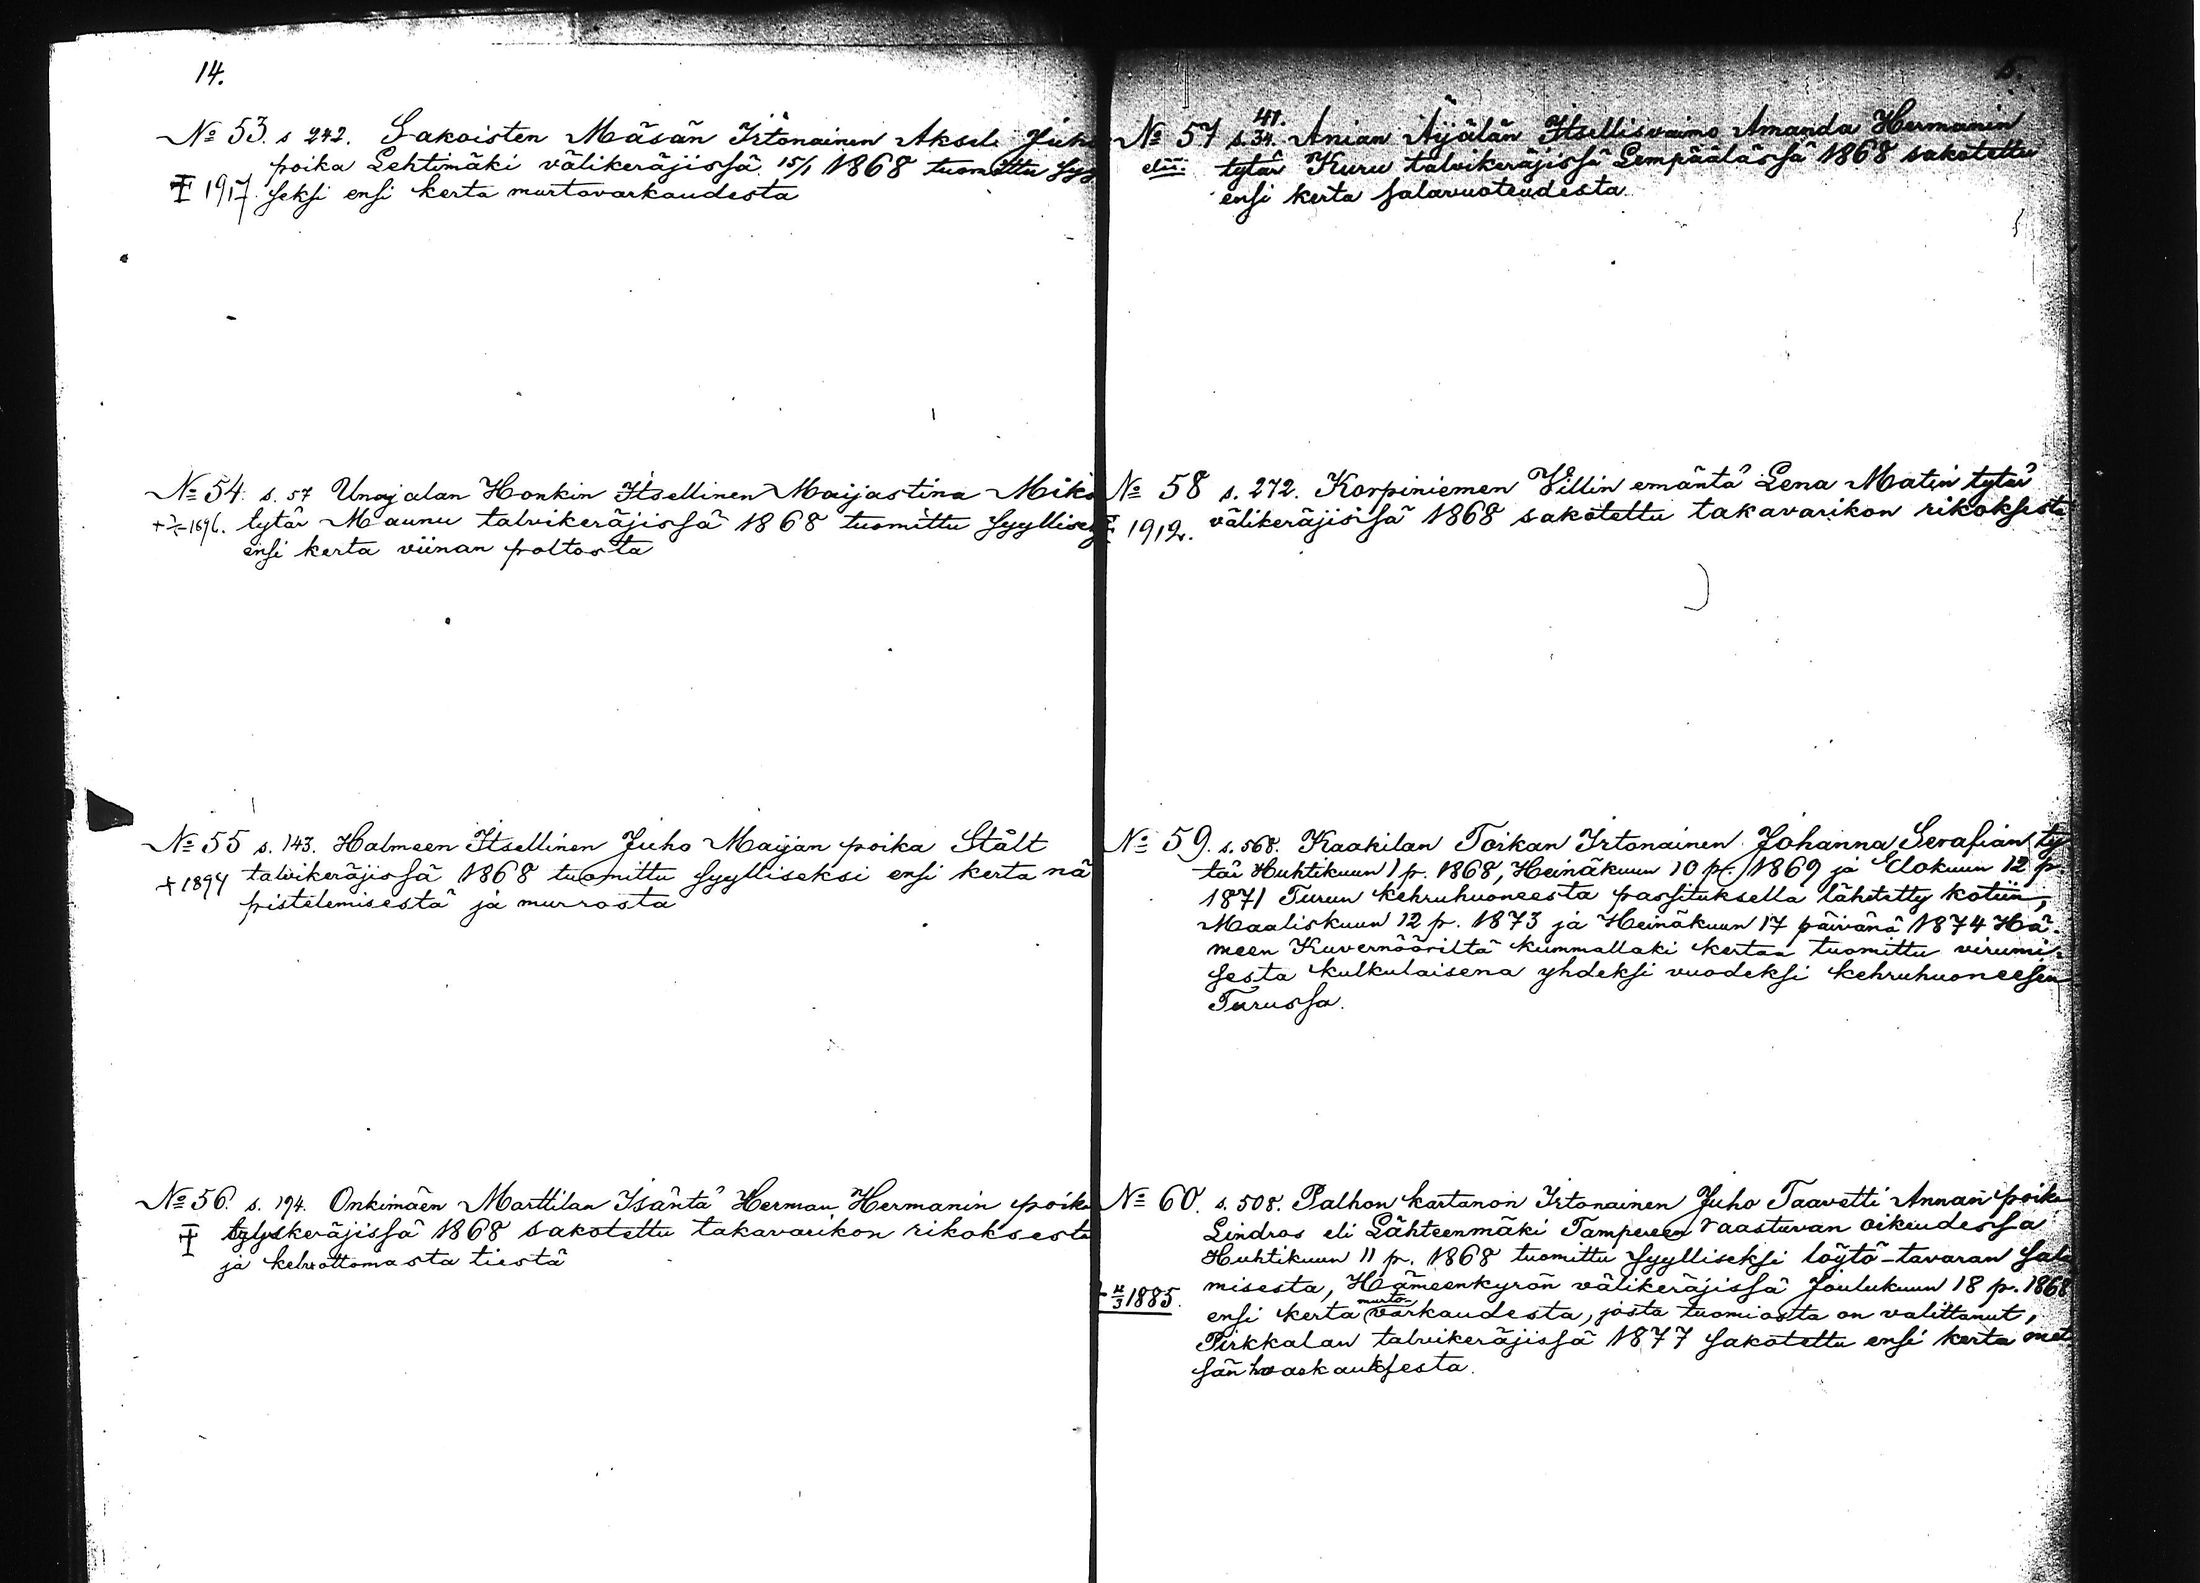 14.
№ 53. s 242. Sakoisten Mäsän Irtonainen Akseli Juho
poika Lehtimäki välikeräjissä 15/1 1868 tuomittu syy
1917 seksi ensi kerta murtovarkaudesta
№ 54. s. 57 Unajalan Honkin Itsellinen Maijastina Mik
1896. tytär Maunu talvikeräjissä 1868 tuomittu syyllise
ensi kerta viinan poltosta
№ 55 s. 143. Halmeen Itsellinen Juho Maijan poika Stålt
+ 1894 talvikeräjissä 1868 tuomittu syylliseksi ensi kerta nä
pistelemisestä ja murrosta
№ 56. s. 194. Onkimäen Marttilan Isäntä Herman Hermanin poika
syyskeräjissä 1868 sakotettu takavarikon rikoksesta
ja kelvottomasta tiestä
5.
41.
№ 57 s. 34. Anian Äijälän Itsellisvaimo Amanda Hermanin
elää. tytär Kuru talvikeräjissä Lempäälässä 1868 sakotettu
ensi kerta salavuoteudesta
№ 58 s. 272. Korpiniemen Villin emäntä Lena Matin tytär
1912. välikeräjissä 1868 sakotettu takavarikon rikoksesta
№ 59. s. 568. Kaakilan Toikan Irtonainen Johanna Serafian ty
tär Huhtikuun 1 p. 1868, Heinäkuun 10 p. 1869 ja Elokuun 12 p.
1871 Turun kehruhuoneesta passituksella lähetetty kotiin,
Maaliskuun 12 p. 1873 ja Heinäkuun 17 päivänä 1874 Hä-
meen Kuvernööriltä kummallaki kertaa tuomittu virumi-
sesta kulkulaisena yhdeksi vuodeksi kehruhuoneesen
Turussa.
№ 60. s. 508. Palhon kartanon Irtonainen Juho Taavetti Annan poika
Lindros eli Lähteenmäki Tampereen Raastuvan oikeudessa
Huhtikuun 11 p. 1868 tuomittu syylliseksi löytö-tavaran sala
misesta, Hämeenkyrön välikeräjissä Joulukuun 18 p. 1868
1885. ensi kerta murto-varkaudesta, josta tuomiosta on valittanut,
Pirkkalan talvikeräjissä 1877 sakotettu ensi kerta met
sän havaskauksesta.